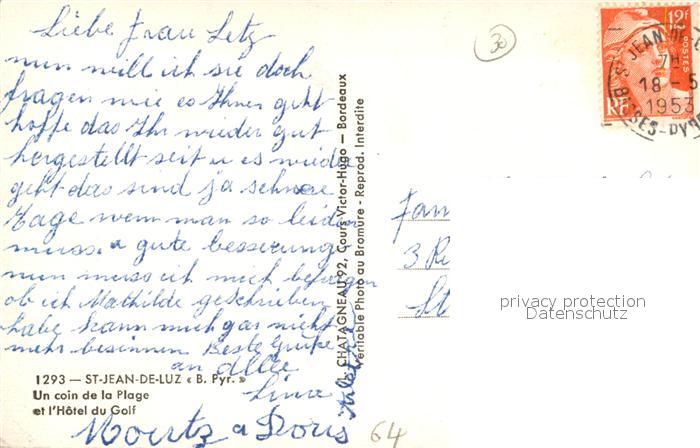 Liebe Frau Letz
nun will ich sie doch
fragen wie es Ihnen geht
hoffe das Ihr wieder gut
hergestellt seit u es wieder
geht das sind ja schwere
Tage wenn man so leiden
muss. a gute besserung
nun muss ich mich befragen
ob ich Mathilde geschrieben
habe kann mich gar nicht
mehr besinnen Beste Grüße
an Alle
Lina
Moritz a Doris
1293 — ST-JEAN-DE-LUZ « B. Pyr. »
Un coin de la Plage
et l'Hôtel du Golf
CHATAGNEAU 92, Cours Victor-Hugo — Bordeaux
Véritable Photo au Bromure - Reprod. Interdite
30
12F
POSTES
RF
ST JEAN-DE-
7H
18 - 5
1953
BSSES-PYR
Fam
3 R
St
privacy protection
Datenschutz
64